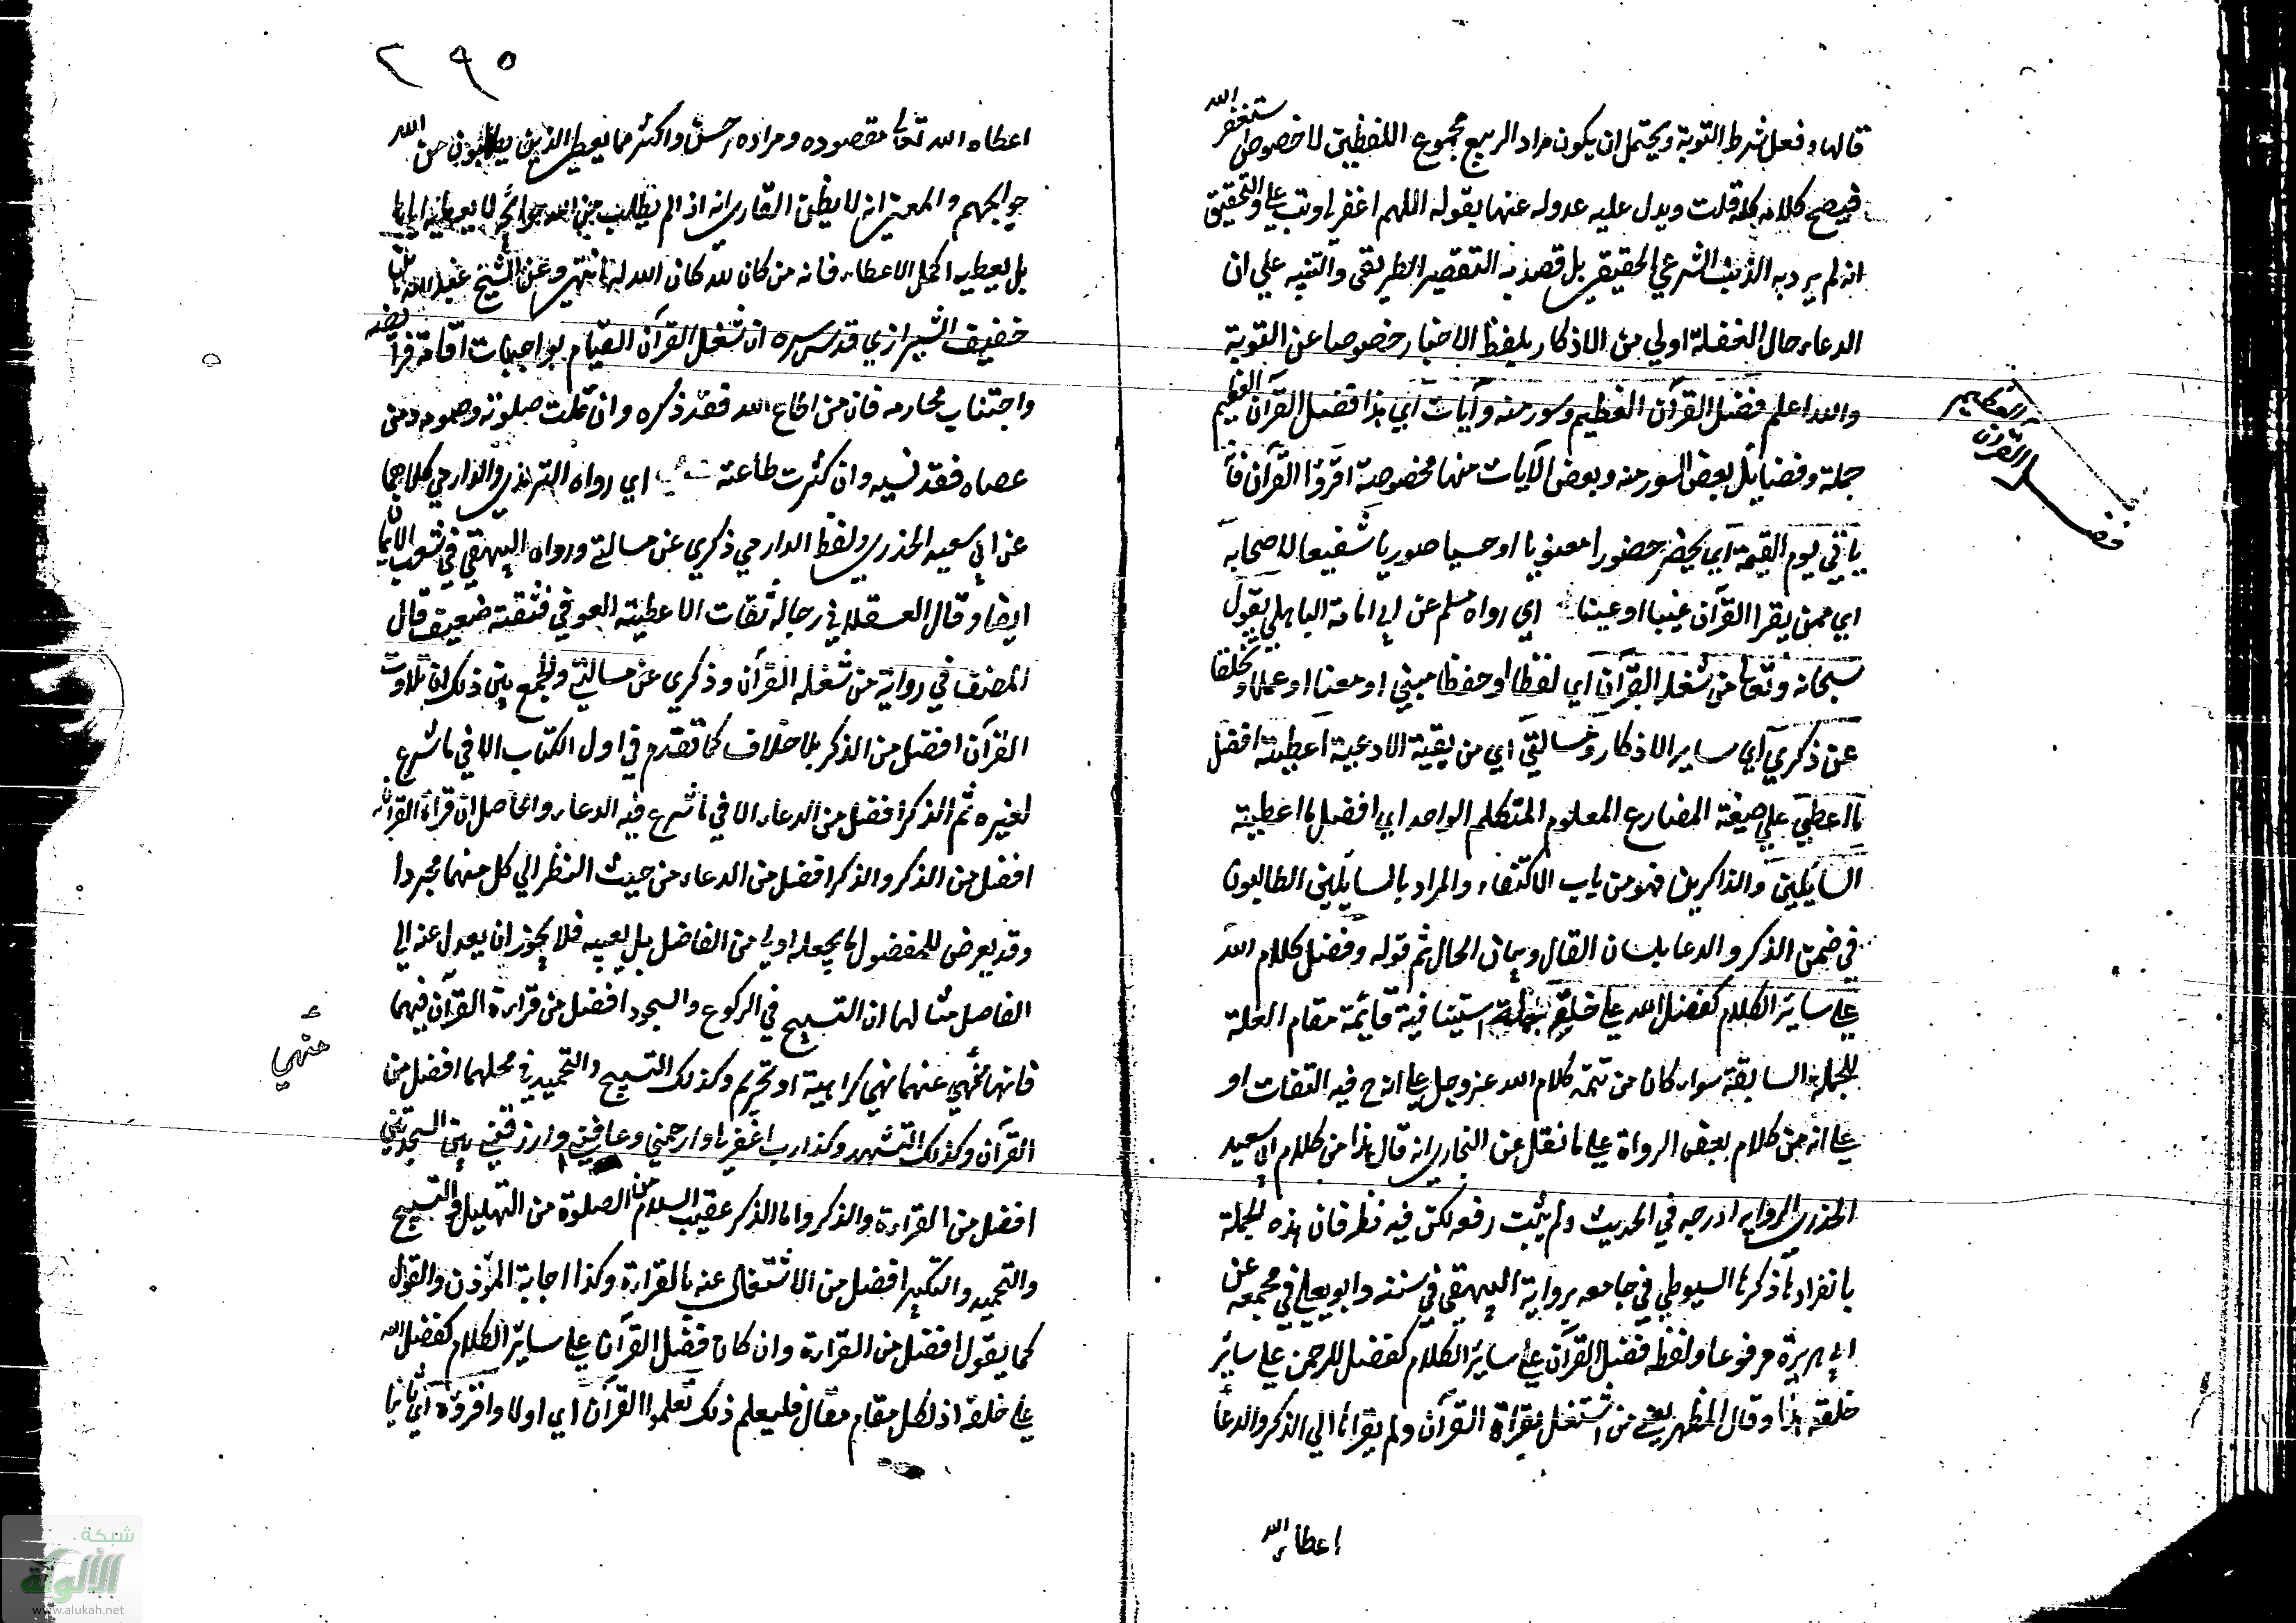 قالها وفعل شرط التوبة ويحتمل ان يكون مراد الربيع مجموع اللفظين لا خصوص استغفر الله
فيصح كلامه كله قلت ويدل عليه عدوله عنها بقوله اللهم اغفر لي وتب علي والتحقيق
انه لم يرد به الذنب الشرعي الحقيقي بل قصد به التقصير الطريقي والتنبيه علي ان
الدعاء حال الغفلة اولي من الاذكار بلفظ الاخبار خصوصا عن التوبة
والله اعلم فضل القرآن العظيم وسور منه وآيات اي هذا فضل القرآن العظيم
جملة وفضايل بعض السور منه وبعض الآيات منها مخصوصة اقرؤا القرآن فانه
ياتي يوم القيمة اي يحضر حضورا معنويا او حسيا صوريا شفيعا لاصحابه
اي ممن يقرا القرآن غيبا او عينا اي رواه مسلم عن ابي امامة الباهلي يقول
سبحانه وتعالى من شغله القرآن اي لفظا او حفظا مبني او معنا او عملا وتخلقا
عن ذكري اي ساير الاذكار ومسالتي اي من بقية الادعية اعطيته افضل
ما اعطي علي صيغة المضارع المعلوم المتكلم الواحد اي افضل ما اعطيته
السايلين والذاكرين فهو من باب الاكتفاء والمراد بالسايلين الطالبون
في ضمن الذكر والدعا بلسان القال وبيان الحال ثم قوله وفضل كلام الله
علي سائر الكلام كفضل الله علي خلقه جملة استينافية قائمة مقام العلة
للجملة السابقة سواء كان من تتمة كلام الله عز وجل علي انه ح فيه التفات او
علي انه من كلام بعض الرواة علي ما نقل عن البخاري انه قال هذا من كلام ابي سعيد
الخدري الرواية ادرجه في الحديث ولم يثبت رفعه لكن فيه نظر فان هذه الجملة
بانفرادها ذكرها السيوطي في جامعه برواية البيهقي في سننه وابو يعلي في معجمه عن
ابي هريرة مرفوعا ولفظه فضل القرآن علي سائر الكلام كفضل الرحمن علي سائر
خلقه هذا وقال المظهر يعني من اشتغل بقراءة القرآن ولم يقرا الي الذكر والدعا
اعطاه الله
فضل القرآن العظيم
٢٩٥
اعطاه الله تعالى مقصوده ومراده احسن واكثر مما يعطي الذين يطلبون من الله
حوايجهم والمعني انه لا يظن القاري انه اذا لم يطلب من الله حوائجه لا يعطيه اياها
بل يعطيه اكمل الاعطاء فانه من كان لله كان الله له انتهي وعن الشيخ عبد الله بن
خفيف الشيرازي قدس سره ان شغل القرآن القيام بواجبات اقامة فرائضه
واجتناب محارمه فان من اطاع الله فقد ذكره وان قلت صلوته وصومه ومن
عصاه فقد نسيه وان كثرت طاعته اي رواه الترمذي والدارمي كلاهما
عن ابي سعيد الخدري ولفظ الدارمي ذكري عن مسالتي ورواه البيهقي في شعب الايمان
ايضا وقال العسقلاني رجاله ثقات الا عطية العوفي ففيه ضعف قال
المصنف في رواية من شغله القرآن وذكري عن مسالتي والجمع بين ذلك ان تلاوت
القرآن افضل من الذكر بلا خلاف كما تقدم في اول الكتاب الا في ما شرع
لغيره ثم الذكر افضل من الدعاء الا في ما شرع فيه الدعاء والحاصل ان قراءة القرآن
افضل من الذكر والذكر افضل من الدعاء من حيث النظر الي كل منهما مجردا
وقد يعرض للمفضول ما يجعله اولي من الفاضل بل يعيبه فلا يجوز ان يعدل عنه الي
الفاضل مثالهما ان التسبيح في الركوع والسجود افضل من قراءة القرآن فيهما
فانها نهي عنهما نهي كراهية او تحريم وكذلك التسبيح والتحميد في محلهما افضل من
القرآن وكذلك التشهد وكذا رب اغفر لي وارحمني وعافني وارزقني بين السجدتين
افضل من القراءة والذكر واما الذكر عقيب السلام من الصلوة من التهليل والتسبيح
والتحميد والتكبير افضل من الاشتغال عنه بالقراءة وكذا اجابة المؤذن والقول
كما يقول افضل من القراءة وان كان فضل القرآن علي سائر الكلام كفضل الله
علي خلقه اذ لكل مقام مقال فليعلم ذلك تعلموا القرآن اي اولا واقرؤه اي ثانيا
منهي
شبكة
الألوكة
www.alukah.net